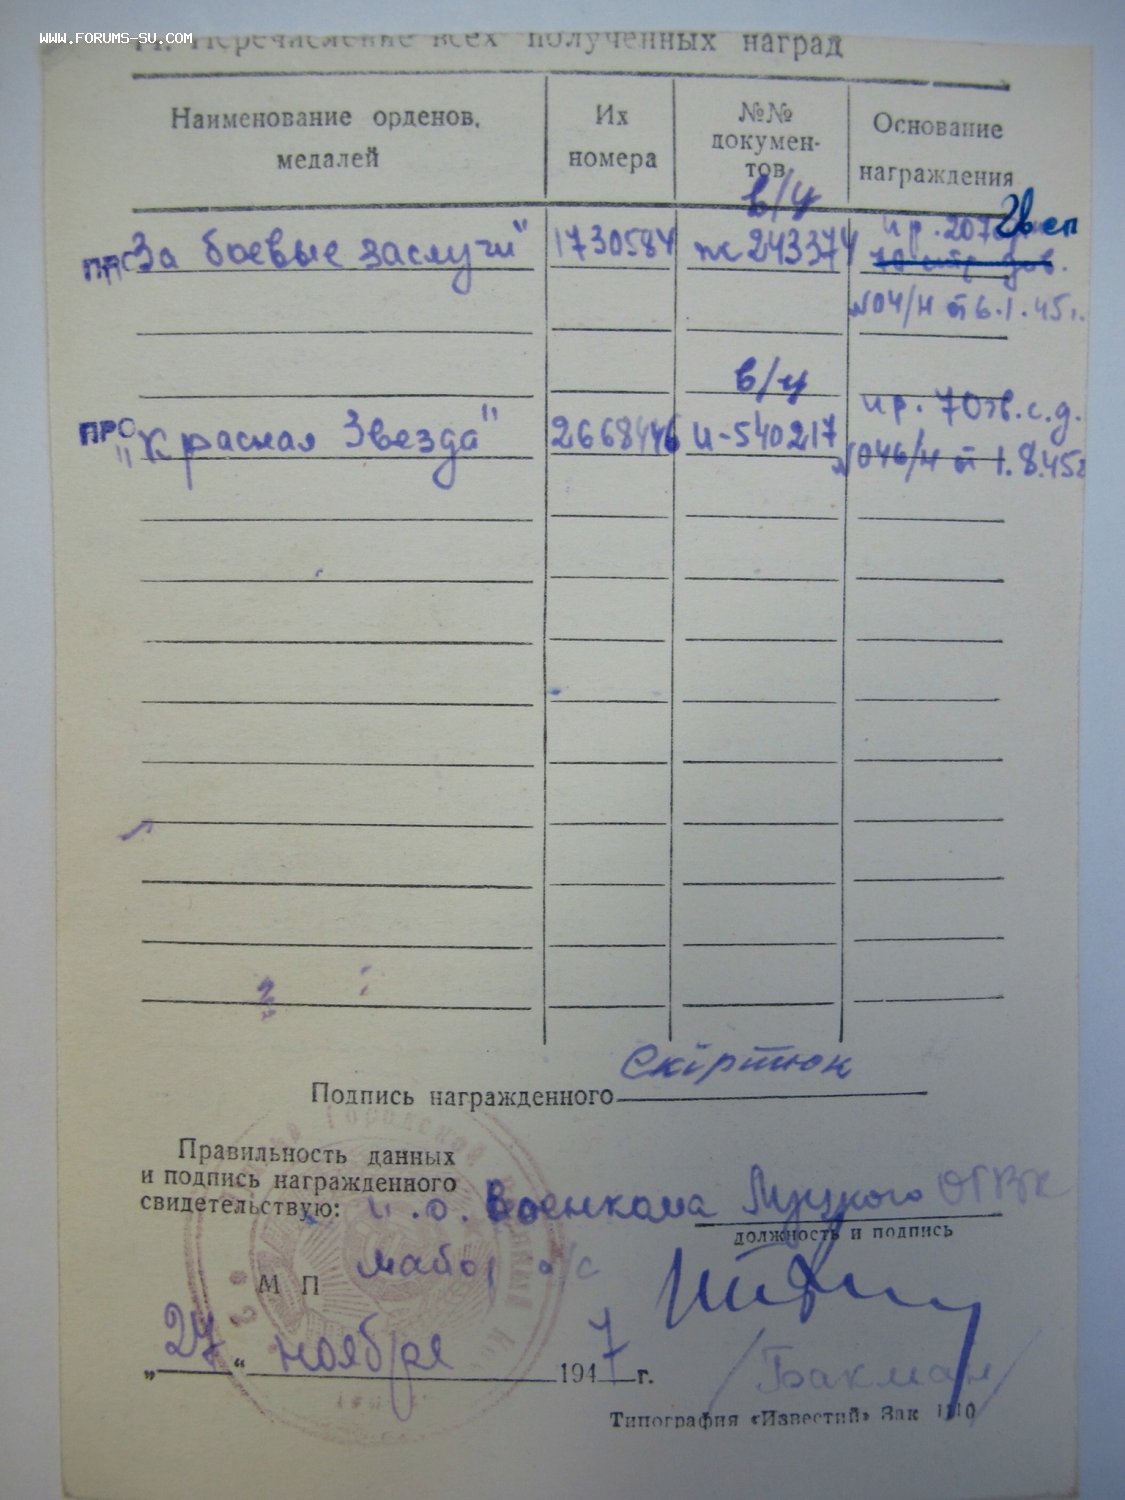 WWW.FORUMS-SU.COM
11. Перечисление всех полученных наград
Наименование орденов, медалей
Их номера
№№ докумен-тов
Основание награждения
в/у
"За боевые заслуги" 1730584 ж 243374 пр. 207 гвсп
№04/н от 6.1.45г.
в/у
ПРО "Красная Звезда" 2668446 и-540217 пр. 70гв.с.д.
№046/н от 1.8.45г
Подпись награжденного Скіртюк
Правильность данных
и подпись награженного
свидетельствую: и.о. Военкома Луцкого ОГВК
должность и подпись
М П майор а/с
„27“ ноября 1947 г.
/Бакман/
Типография «Известий» Зак 1110